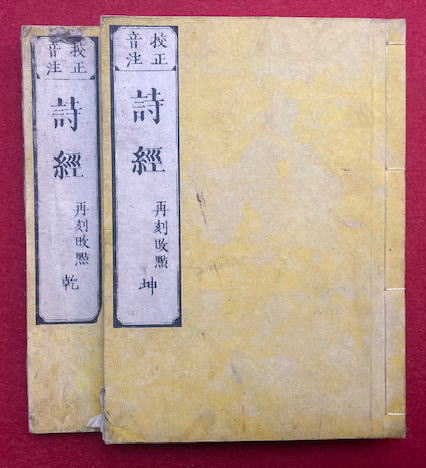 校正
音注
詩經
再刻改點
坤
校正
音注
詩經
再刻改點
乾